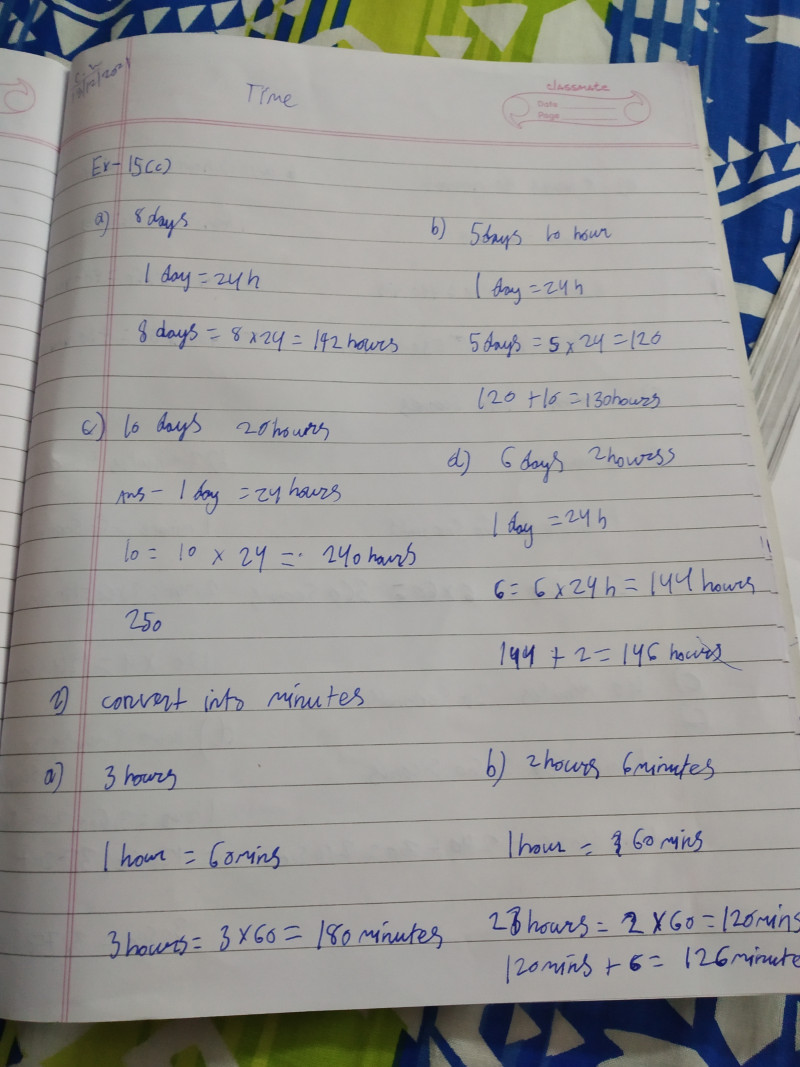 Time
classmate
Date
Page
Ex-15(c)
a) 8 days
1 day = 24h
8 days = 8 x 24 = 192 hours
b) 5 days 10 hour
1 day = 24h
5 days = 5 x 24 = 120
120 + 10 = 130 hours
c) 10 days 20 hours
Ans - 1 day = 24 hours
10 = 10 x 24 = 240 hours
250
d) 6 days 2 hourss
1 day = 24 h
6 = 6 x 24 h = 144 hours
144 + 2 = 146 hours
2) convert into minutes
a) 3 hours
1 hour = 60 mins
3 hours = 3 x 60 = 180 minutes
b) 2 hours 6 minutes
1 hour = 60 mins
2 hours = 2 x 60 = 120 mins
120 mins + 6 = 126 minute